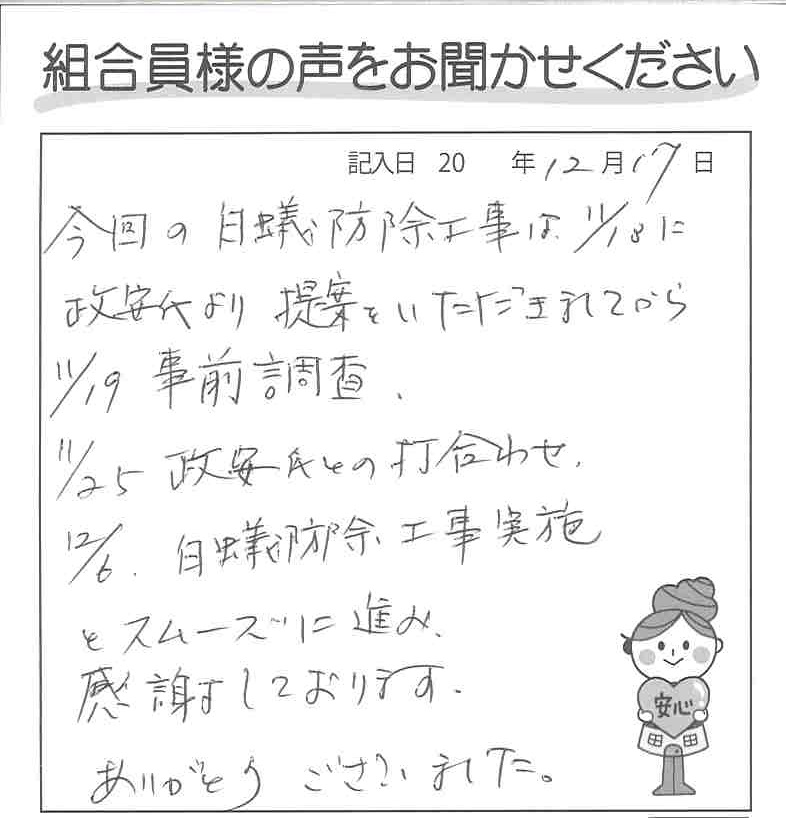 組合員様の声をお聞かせください
記入日 20 年12月17日
今回の白蟻防除工事は11/18に
政安氏より提案をいただきましてから
11/19 事前調査、
11/25 政安氏との打合わせ、
12/6、白蟻防除工事実施
とスムーズに進み、
感謝しております。
ありがとうございました。
安心